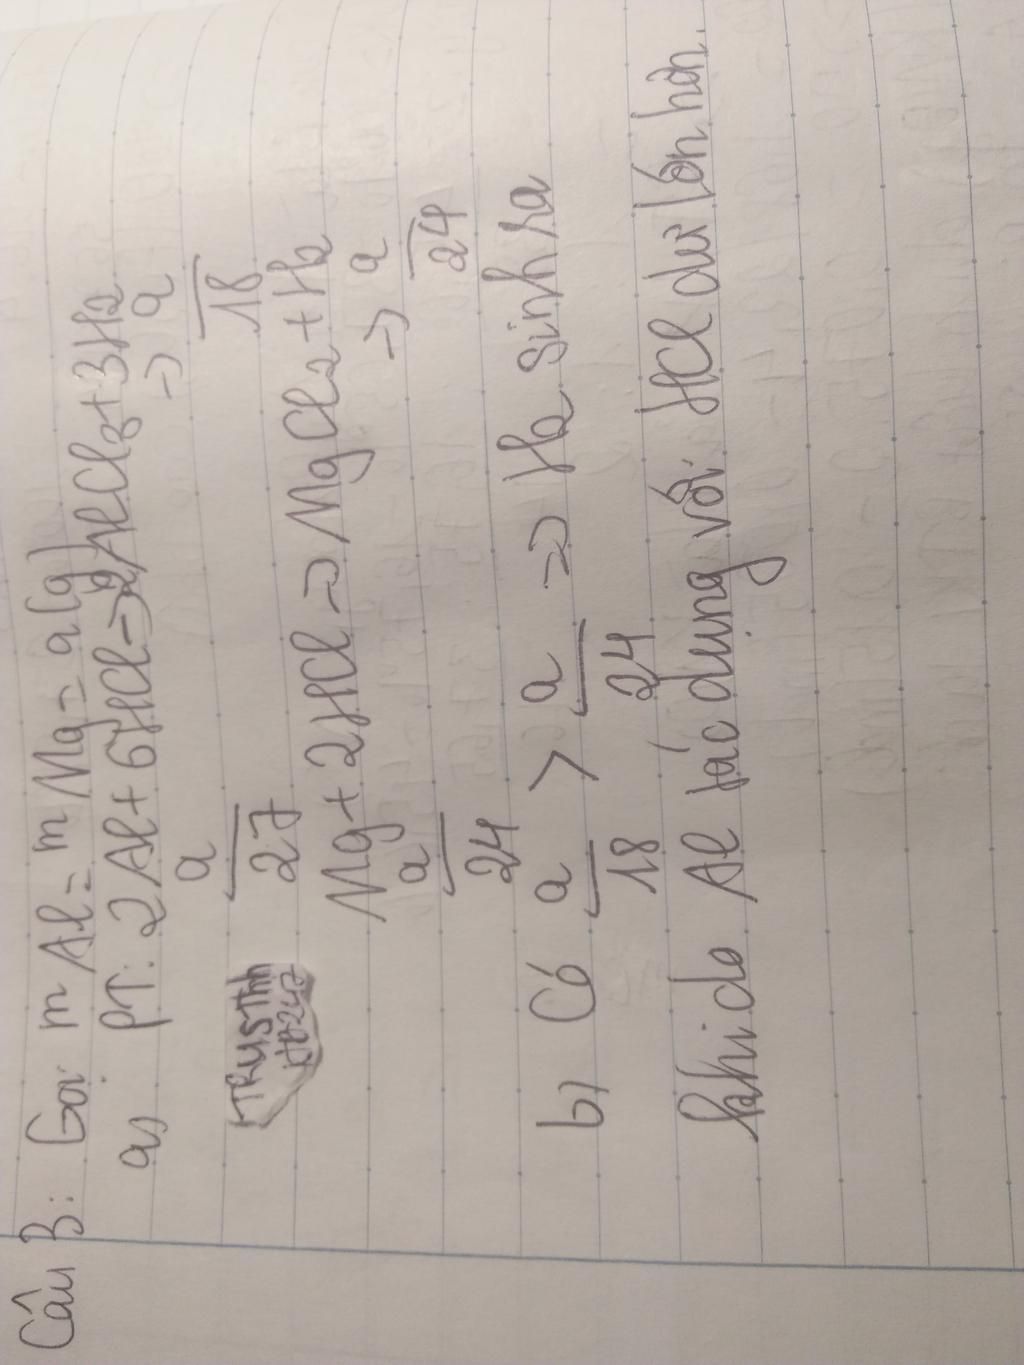 Câu 3: Gọi m Al = m Mg = a(g)
a, PT: 2Al + 6HCl → 2AlCl3 + 3H2
a → a
27 18
Mg + 2HCl → MgCl2 + H2
a → a
24 24
b) Có a > a => H2 sinh ra
18 24
khi do Al tác dụng với HCl dư lớn hơn.